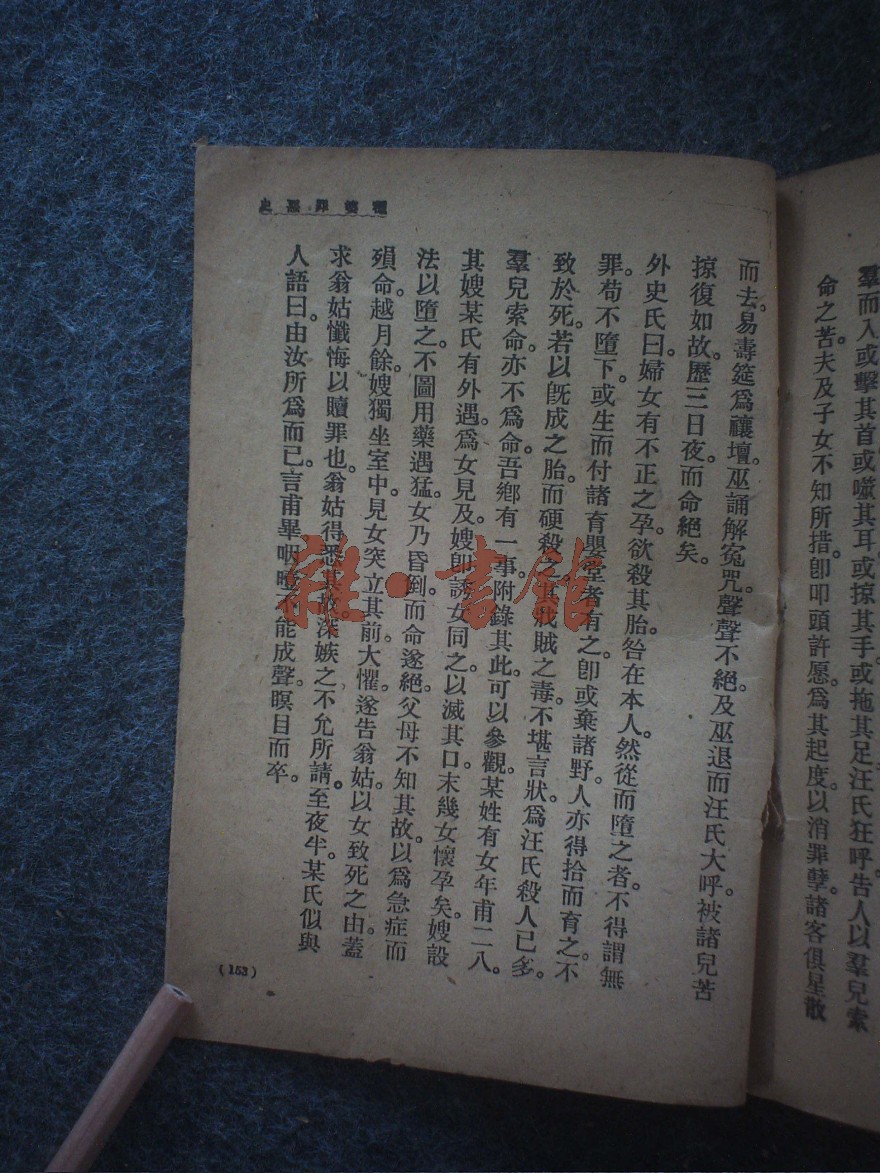 羣而入或擊其首或噬其耳或掠其手或拖其足汪氏狂呼告人以羣兒索
命之苦夫及子女不知所措。卽叩頭許愿爲其起度。以消罪孽。諸客俱星散
穩婆罪惡史
而去。易壽筵爲禳壇。巫誦解寃咒。聲聲不絕。及巫退而汪氏大呼。被諸兒苦
掠復如故。歷三日夜。而命絕矣。
外史氏曰。婦女有不正之孕。欲殺其胎。咎在本人。然從而墮之者。不得謂無
罪。苟不墮下。或生而付諸育嬰堂者有之。卽或棄諸野。人亦得拾而育之。不
致於死。若以旣成之胎。而硬殺之。其戕賊之毒。不堪言狀。爲汪氏殺人已多。
羣兒索命。亦不爲命。吾鄕有一事。附錄其此。可以參觀。某姓有女年甫二八。
其嫂某氏有外遇。爲女見及。嫂卽誘女同之。以滅其口。末幾女懷孕矣。嫂設
法以墮之。不圖用藥過猛。女乃昏到。而命遂絕。父母不知其故。以爲急症而
殞命。越月餘。嫂獨坐室中。見女突立其前。大懼。遂告翁姑。以女致死之由。蓋
求翁姑懺悔以贖罪也。翁姑得悉其故。深嫉之。不允所請。至夜半。某氏似與
人語曰。由汝所爲而已。言甫畢。咽喑不能成聲。瞑目而卒。
(153)
雜·書館